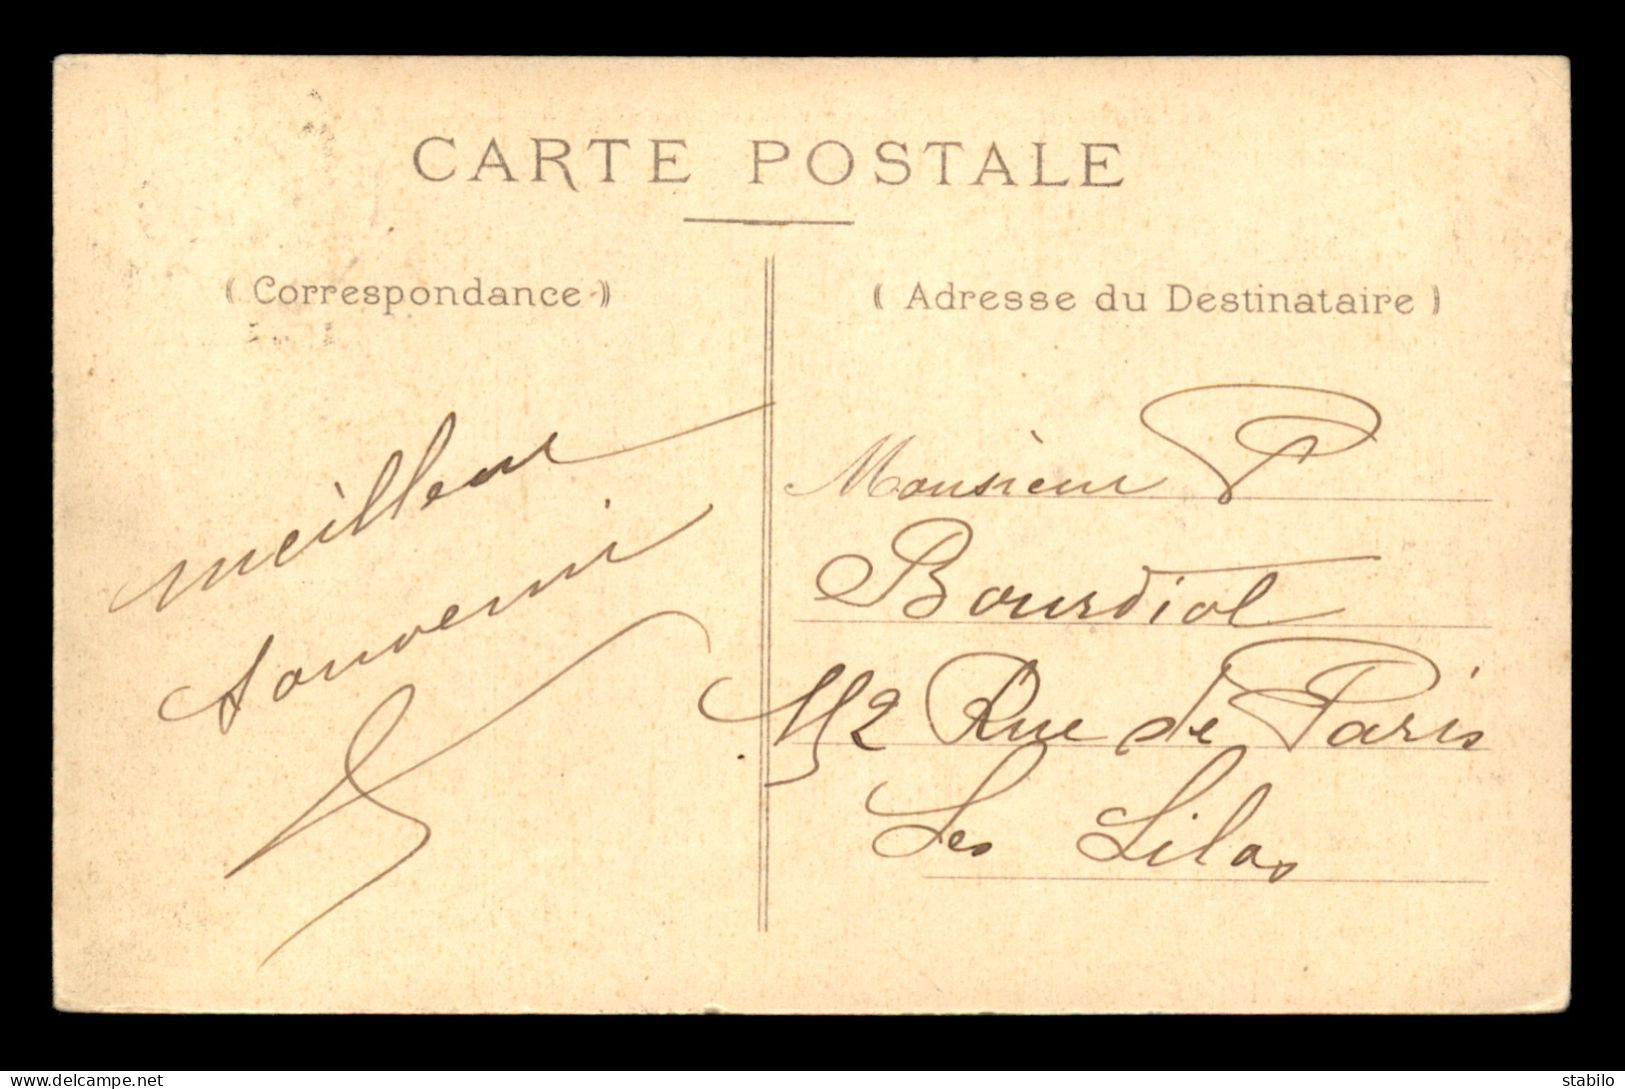 CARTE POSTALE
( Correspondance )
meilleur
souvenir
( Adresse du Destinataire )
Monsieur P
Bourdiol
152 Rue de Paris
Les Lilas
stabilo